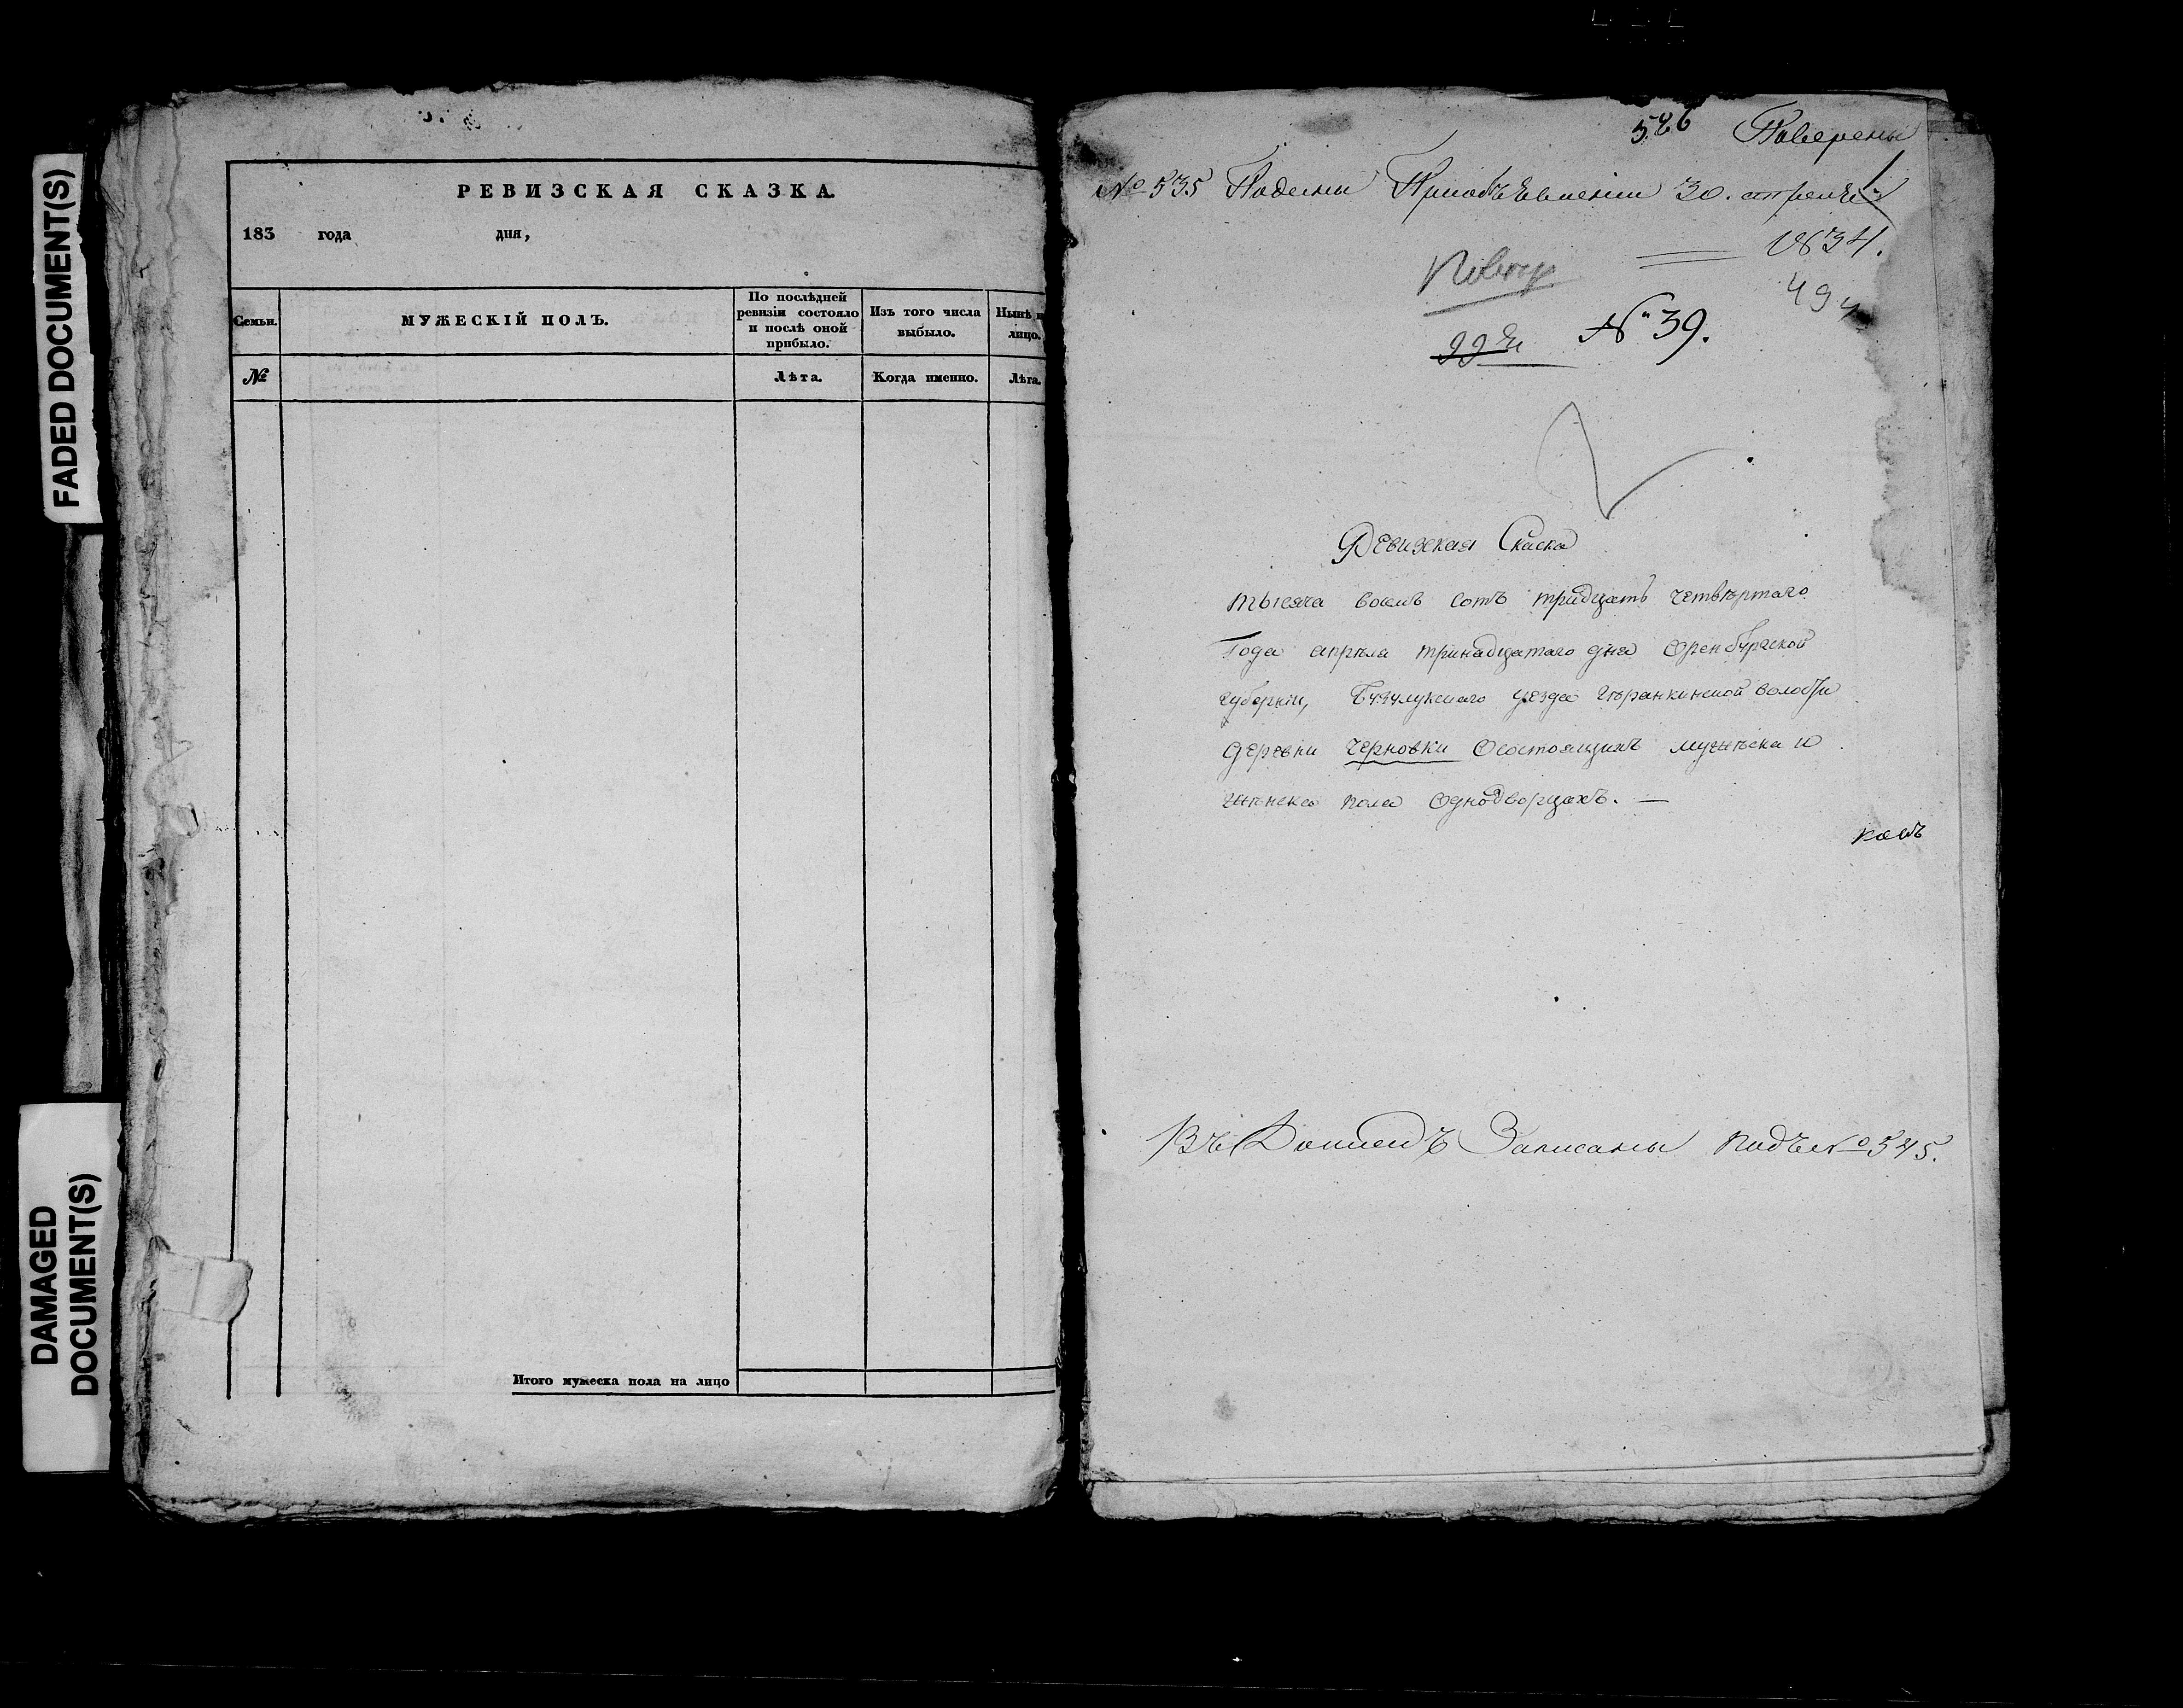 FADED DOCUMENT(S)
DAMAGED
DOCUMENT(S)
РЕВИЗСКАЯ СКАЗКА
183 года дня,
Семьи.
МУЖЕСКІЙ ПОЛЪ.
По послѣдней
ревизіи состояло
и послѣ оной
прибыло.
Изъ того числа
выбыло.
Нынѣ
лицо.
№
Лѣта.
Когда именно.
Лѣта.
Итого мужеска пола на лицо
526 Поверены
№ 535 Поданы При объявленіи 30. апреля
1834.
494
№ 39.
Ревизская Скаска
тысяча восемь сотъ тридцать четвертаго
Года апреля тринадцатаго дня Оренбургской
губерніи, Бузулукскаго уезда волости
деревни Черновки Осостоящихъ мужеска и
женска пола Однодворцахъ. —
Записаны подъ № 545.